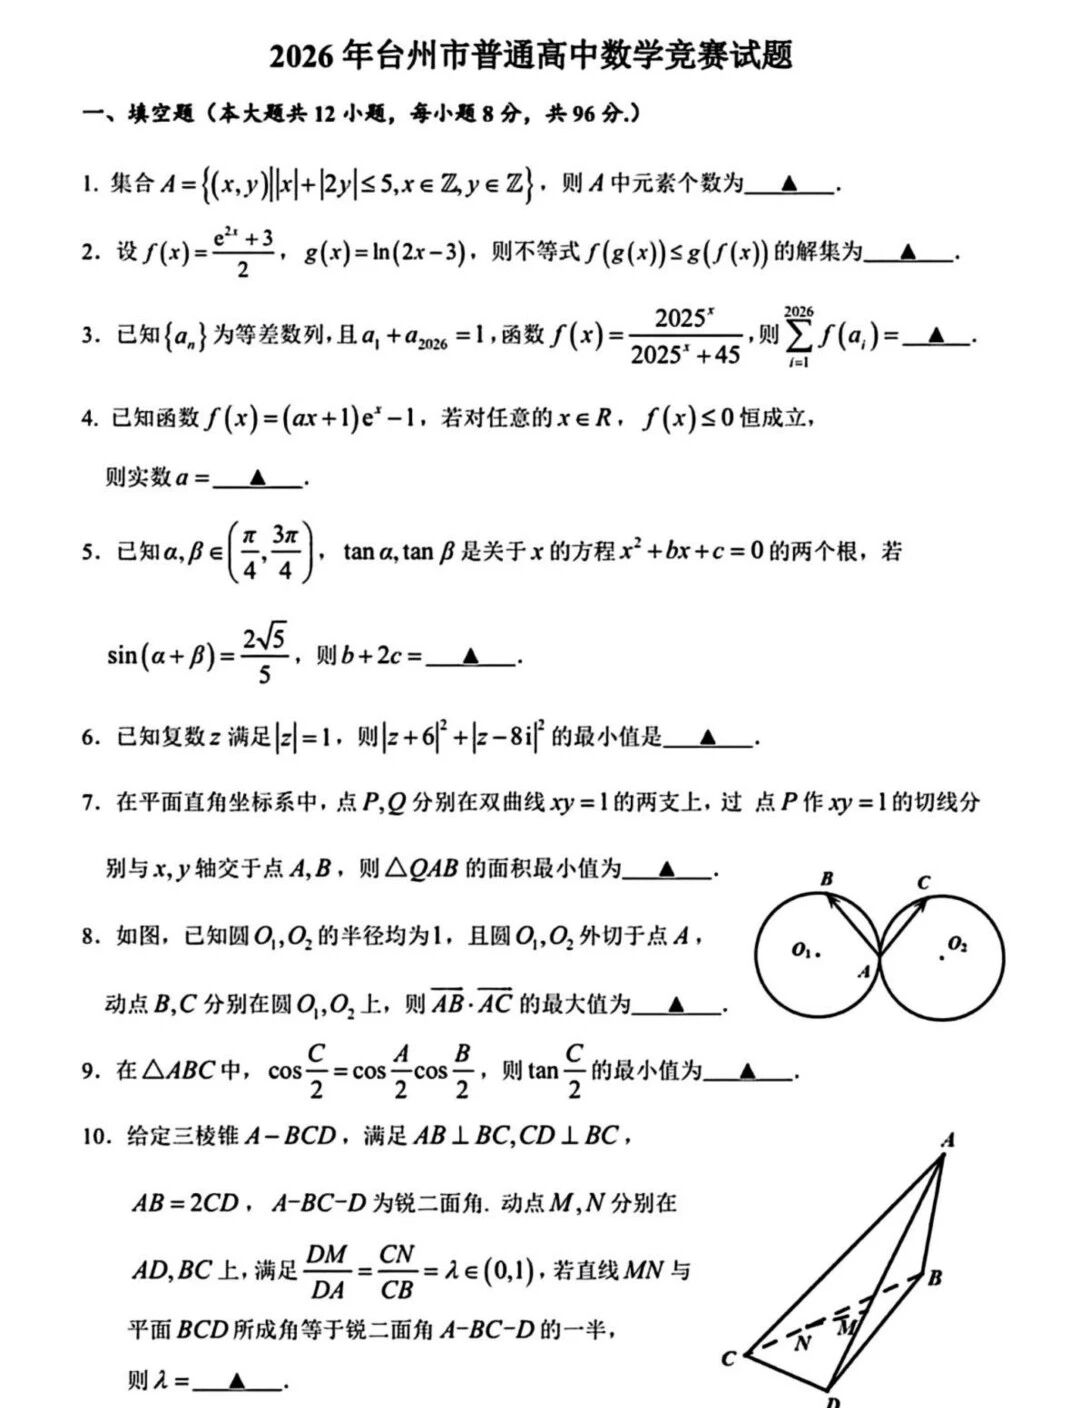 2026 年台州市普通高中数学竞赛试题
一、填空题（本大题共 12 小题，每小题 8 分，共 96 分.）
1. 集合 A={(x,y)||x|+|2y|≤5,x∈ℤ,y∈ℤ}，则 A 中元素个数为___▲___.
2. 设 f(x)=(e^{2x}+3)/2，g(x)=ln(2x-3)，则不等式 f(g(x))≤g(f(x)) 的解集为___▲___.
3. 已知{a_n}为等差数列,且 a_1+a_{2026}=1,函数 f(x)=2025^x/(2025^x+45),则 ∑_{i=1}^{2026} f(a_i)=___▲___.
4. 已知函数 f(x)=(ax+1)e^x-1，若对任意的 x∈R，f(x)≤0 恒成立，
则实数 a=___▲___.
5. 已知 α,β∈(π/4,3π/4)，tan α,tan β 是关于 x 的方程 x²+bx+c=0 的两个根，若
sin(α+β)=2√5/5，则 b+2c=___▲___.
6. 已知复数 z 满足|z|=1，则|z+6|²+|z-8i|² 的最小值是___▲___.
7. 在平面直角坐标系中，点 P,Q 分别在双曲线 xy=1 的两支上，过 点 P 作 xy=1 的切线分
别与 x,y 轴交于点 A,B，则 △QAB 的面积最小值为___▲___.
8. 如图，已知圆 O_1,O_2 的半径均为 1，且圆 O_1,O_2 外切于点 A，
动点 B,C 分别在圆 O_1,O_2 上，则 \overline{AB}·\overline{AC} 的最大值为___▲___.
B
C
O_1
O_2
A
9. 在 △ABC 中，cos C/2=cos A/2 cos B/2，则 tan C/2 的最小值为___▲___.
10. 给定三棱锥 A-BCD，满足 AB⊥BC,CD⊥BC，
AB=2CD，A-BC-D 为锐二面角. 动点 M,N 分别在
AD,BC 上,满足 DM/DA=CN/CB=λ∈(0,1),若直线 MN 与
平面 BCD 所成角等于锐二面角 A-BC-D 的一半，
则 λ=___▲___.
A
B
M
N
C
D